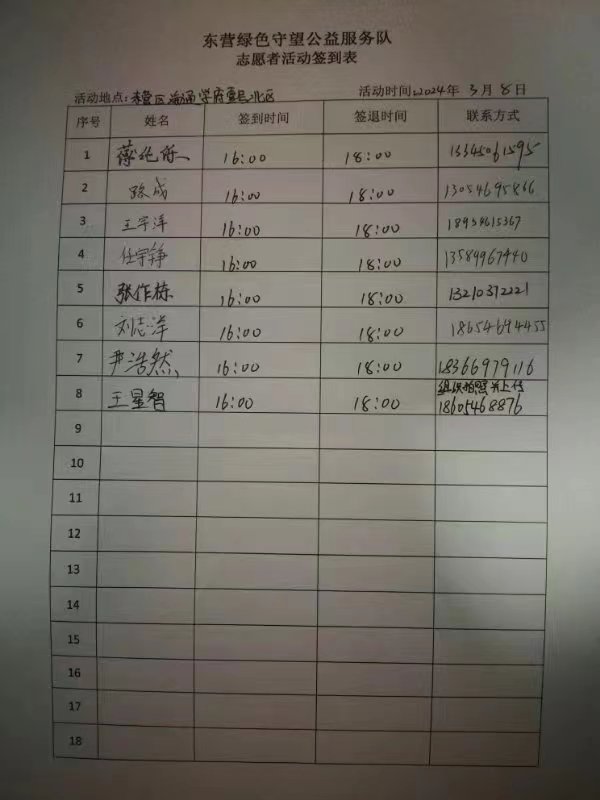 东营绿色守望公益服务队
志愿者活动签到表
活动地点:东营区海通学府壹号北区 活动时间:2024年 3月 8日
序号 姓名 签到时间 签退时间 联系方式
1 16:00 18:00 13345061595
2 路成 16:00 18:00 13054695866
3 王宇洋 16:00 18:00 18954615367
4 任宇铮 16:00 18:00 13589967440
5 张作栋 16:00 18:00 13210372221
6 刘志洋 16:00 18:00 18654694455
7 尹浩然 16:00 18:00 18366979116
8 王星智 16:00 18:00 组织拍照并上传
18605468876
9
10
11
12
13
14
15
16
17
18